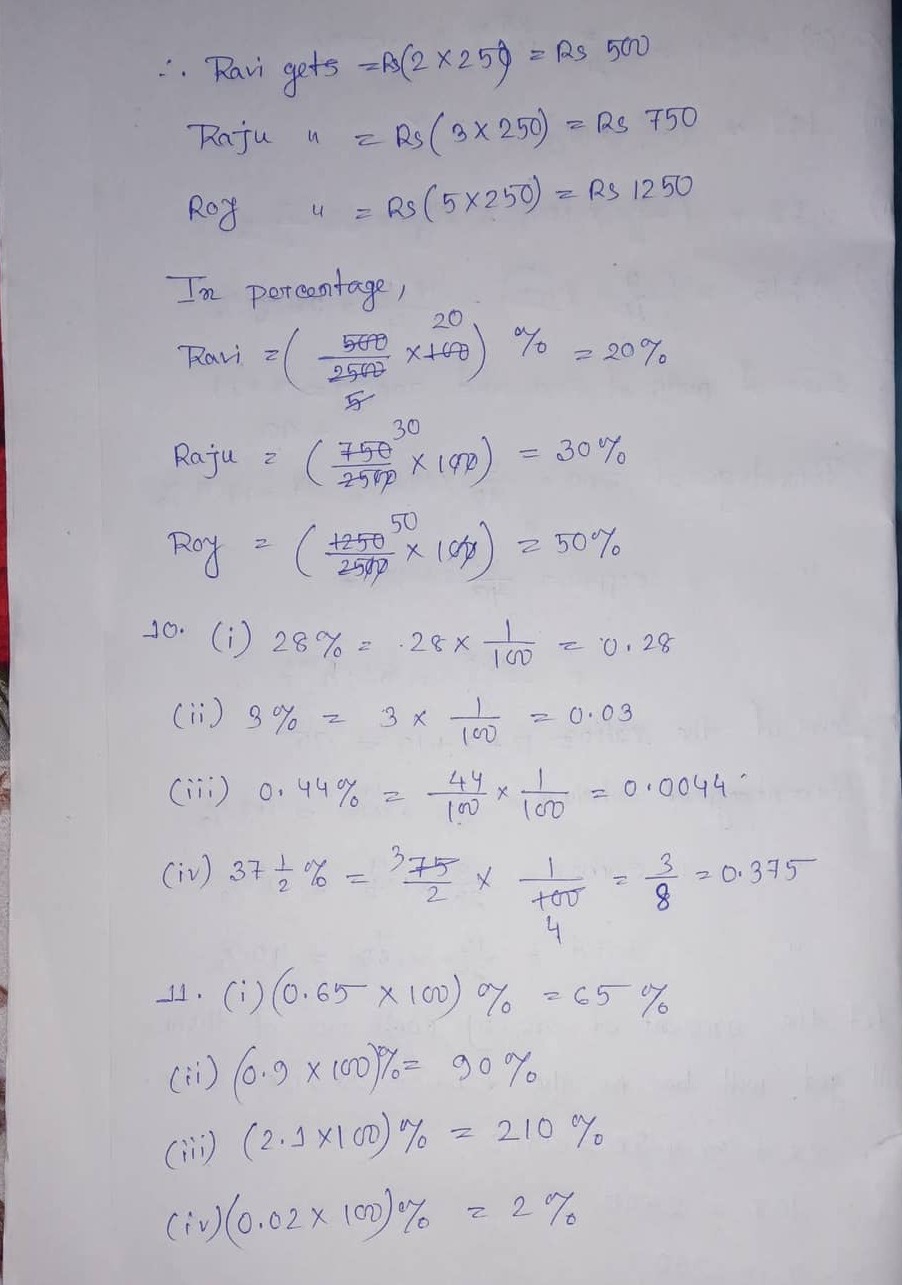 ∴ Ravi gets = Rs(2 × 250) = Rs 500
Raju " = Rs(3 × 250) = Rs 750
Roy " = Rs(5 × 250) = Rs 1250
In percentage,
20
Ravi = (500/2500 × 100) % = 20%
5
30
Raju = (750/2500 × 100) = 30%
50
Roy = (1250/2500 × 100) = 50%
10. (i) 28% = 28 × 1/100 = 0.28
(ii) 3% = 3 × 1/100 = 0.03
(iii) 0.44% = 44/100 × 1/100 = 0.0044
(iv) 37 1/2 % = 3 75/2 × 1/100 = 3/8 = 0.375
4
11. (i) (0.65 × 100) % = 65 %
(ii) (0.9 × 100)% = 90%
(iii) (2.1 × 100) % = 210 %
(iv) (0.02 × 100)% = 2 %